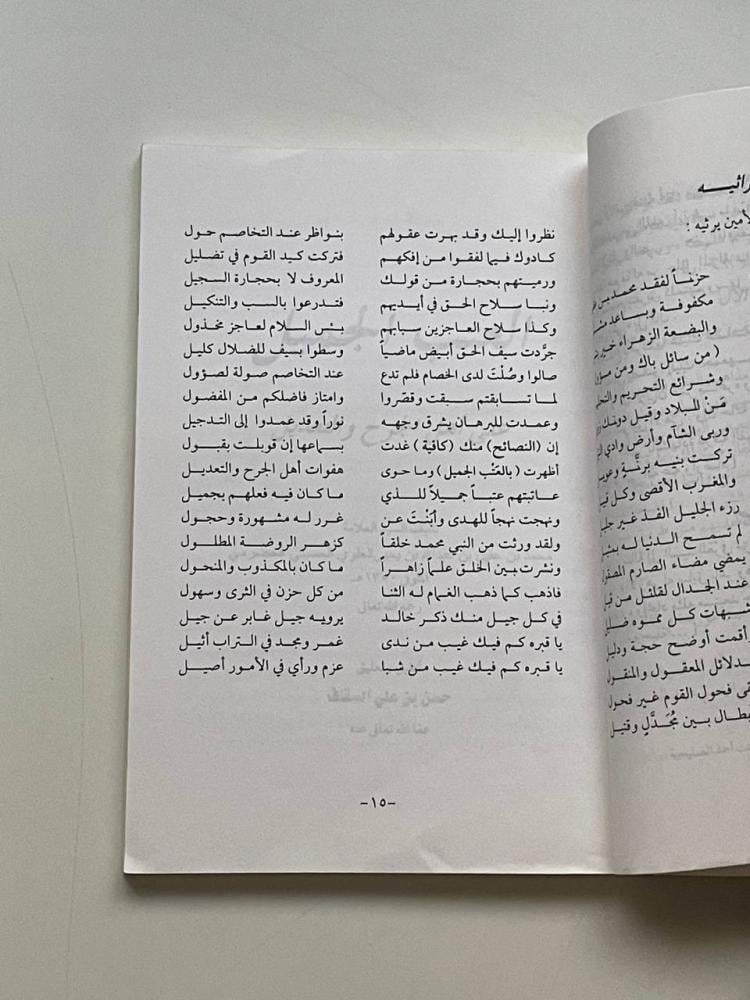 نظروا إليك وقد بهرت عقولهم بنواظر عند التخاصم حول
كادوك فيما لفقوا من إفكهم فتركت كيد القوم في تضليل
ورميتهم بحجارة من قولك المعروف لا بحجارة السجيل
ونبا سلاح الحق في أيديهم فتدرعوا بالسب والتنكيل
وكذا سلاح العاجزين سبابهم بئس السلام لعاجز مخذول
جرَّدت سيف الحق أبيض ماضياً وسطوا بسيف للضلال كليل
صالوا وصُلْتَ لدى الخصام فلم تدع عند التخاصم صولة لصؤول
لما تسابقتم سبقت وقصّروا وامتاز فاضلكم من المفضول
وعمدت للبرهان يشرق وجهه نوراً وقد عمدوا إلى التدجيل
إن (النصائح) منك (كافية) غدت بسماعها إن قوبلت بقبول
أظهرت (بالعَتْب الجميل) وما حوى هفوات أهل الجرح والتعديل
عاتبتهم عتباً جميلاً للذي ما كان فيه فعلهم بجميل
ونهجت نهجاً للهدى وأبَنْتَ عن غرر له مشهورة وحجول
ولقد ورثت من النبي محمد خلقاً كزهر الروضة المطلول
ونشرت بين الخلق علماً زاهراً ما كان بالمكذوب والمنحول
فاذهب كما ذهب الغمام له الثنا من كل حزن في الثرى وسهول
في كل جيل منك ذكر خالد يرويه جيل غابر عن جيل
يا قبره كم فيك غيب من ندى غمر ومجد في التراب أثيل
يا قبره كم فيك غيب من شبا عزم ورأي في الأمور أصيل
-١٥-
يرثيه :
حزناً لفقد محمد بن
مكفوفة وبساعد
والبضعة الزهراء خير
( من سائل باك ومن
وشرائع التحريم
مَنْ للبلاد وقيل دونك
وربى الشآم وأرض وادي
تركت بنيه برنَّةٍ
والمغرب الأقصى وكل
رزء الجليل الفذ غير
لم تسمح الدنيا له
يمضي مضاء الصارم
عند الجدال لقلتل من
شبهات كل مموه
وأقمت أوضح حجة
بدلائل المعقول والمنقول
فحول القوم غير فحول
بين مُجَدَّلٍ وقتيل